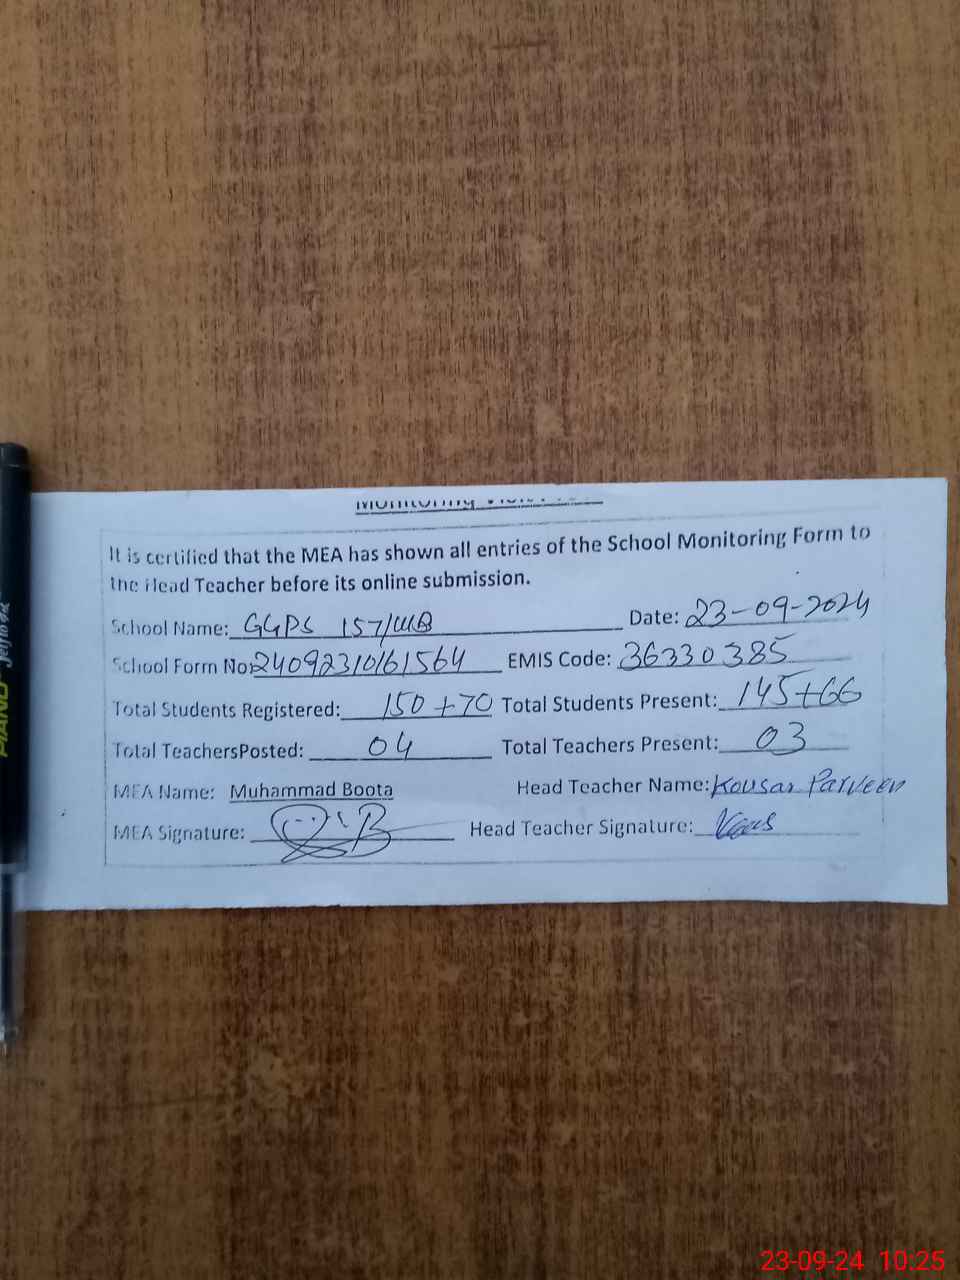 It is certified that the MEA has shown all entries of the School Monitoring Form to
the Head Teacher before its online submission.
School Name: GGPS 157/WB Date: 23-09-2024
School Form No: 24092310161564 EMIS Code: 36330385
Total Students Registered: 150+70 Total Students Present: 145+66
Total TeachersPosted: 04 Total Teachers Present: 03
MEA Name: Muhammad Boota Head Teacher Name: Kousar Parveen
MEA Signature: Head Teacher Signature:
PIANO
23-09-24 10:25